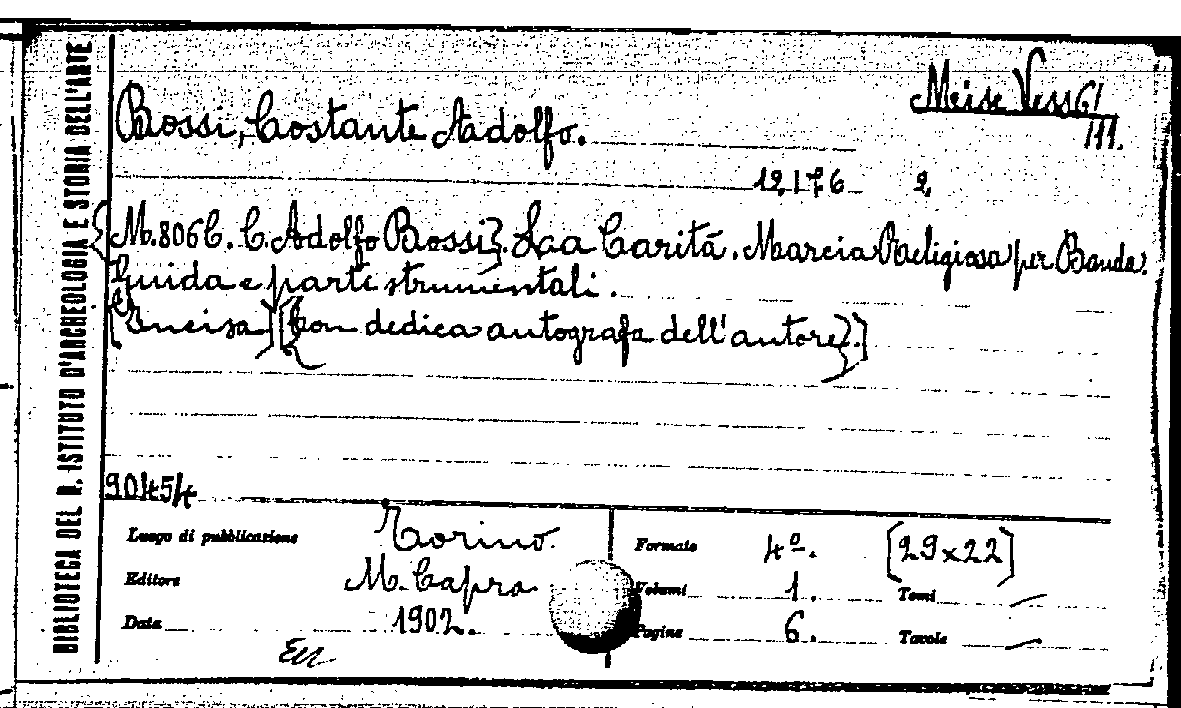 BIBLIOTECA DEL R. ISTITUTO D'ARCHEOLOGIA E STORIA DELL'ARTE
Bossi, Costante Adolfo.
61
III.
12176 2
{M.806C. C. Adolfo Bossi}. La Carità. Marcia Religiosa per Banda.
Guida e parti strumentali.
[Incisa] [{Con dedica autografa dell'autore}.]
90454
Luogo di pubblicazione Torino.
Editore M. Capra
Data 1902.
Formato 4º. [29x22]
Volumi 1. Tomi —
Pagine 6. Tavole —